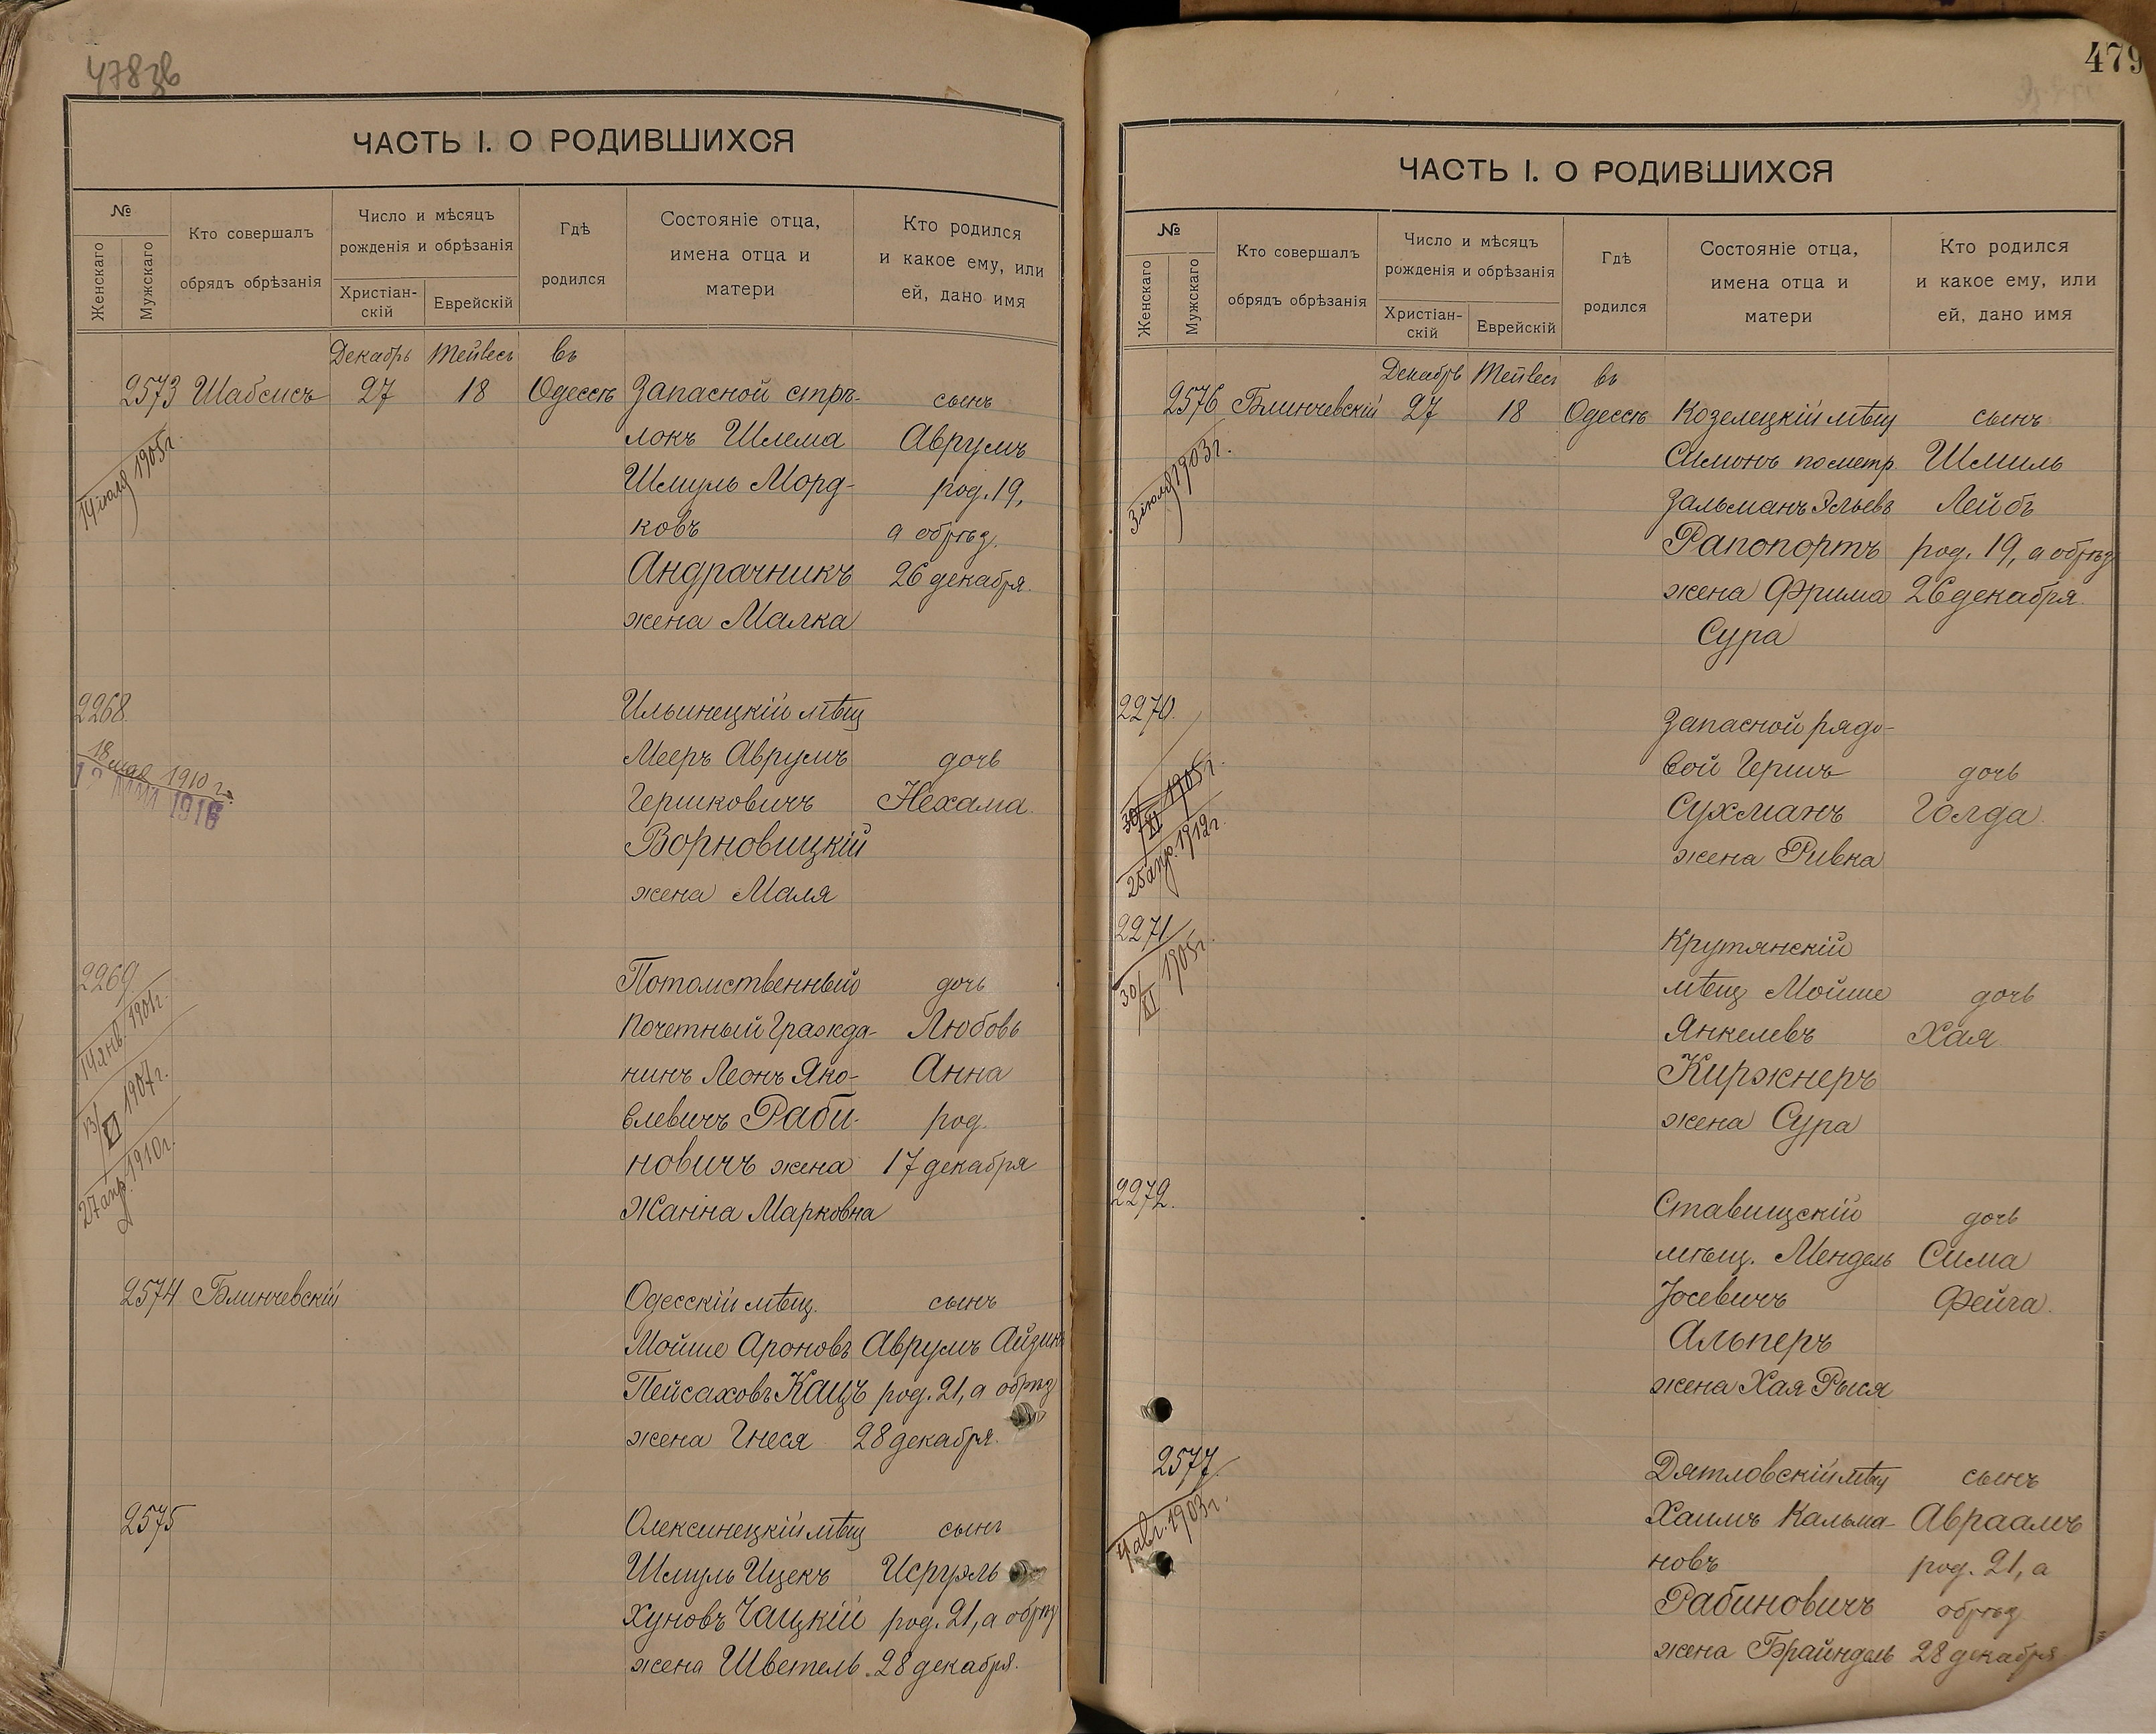 478зв
ЧАСТЬ I. О РОДИВШИХСЯ
№
Женскаго
Мужскаго
Кто совершалъ
обрядъ обрѣзанія
Число и мѣсяцъ
рожденія и обрѣзанія
Христіан-
скій
Еврейскій
Гдѣ
родился
Состояніе отца,
имена отца и
матери
Кто родился
и какое ему, или
ей, дано имя
Декабрь Тейвесъ въ
2573 Шабсисъ 27 18 Одессѣ Запасной стрѣ- сынъ
локъ Шлема Аврумъ
14 іюля 1905 г.
Шмуль Морд- род. 19,
ковъ а обрѣз.
Андрачникъ 26 декабря.
жена Малка
2268. Ильинецкій мѣщ
18 мая 1910 г.
1916
Мееръ Аврумъ дочь
Гершковичъ Нехама.
Ворновицкій
жена Маля
2269. Потомственный дочь
14 янв. 1901 г.
Почетный Гражда- Любовь
нинъ Леонъ Яко- Анна
13/XI 1907 г.
влевичъ Раби- род.
новичъ жена 17 декабря
27 апр. 1910 г.
Жанна Марковна
2574 Блинчевскій Одесскій мѣщ. сынъ
Мойше Ароновъ Аврумъ Айзикъ
Пейсаховъ Кацъ род. 21, а обрѣз
жена Гнеся 28 декабря.
2575 Олексинецкій мѣщ сынъ
Шмуль Ицекъ Исруэль
Хуновъ Чацкій род. 21, а обрѣз
жена Шветель 28 декабря.
479
ЧАСТЬ I. О РОДИВШИХСЯ
№
Женскаго
Мужскаго
Кто совершалъ
обрядъ обрѣзанія
Число и мѣсяцъ
рожденія и обрѣзанія
Христіан-
скій
Еврейскій
Гдѣ
родился
Состояніе отца,
имена отца и
матери
Кто родился
и какое ему, или
ей, дано имя
Декабрь Тейвесъ въ
2576 Блинчевскій 27 18 Одессѣ Козелецкій мѣщ сынъ
3 іюля 1903 г.
Симонъ по метр. Шмиль
Зальманъ Эльевъ Лейбъ
Рапопортъ род. 19, а обрѣз
жена Фрима 26 декабря.
Сура
2270. Запасной рядо-
30/XI 1905 г.
25 апр. 1912 г.
вой Гершъ дочь
Сухманъ Голда
жена Ривка
2271 Крутянскій
30/XI 1905 г.
мѣщ Мойше дочь
Янкелевъ Хая
Киржнеръ
жена Сура
2272. Ставищскій дочь
мѣщ. Мендель Сима
Іосевичъ Фейга.
Альперъ
жена Хая Рыся
2577. Дятловскій мѣщ сынъ
4 авг. 1903 г.
Хаимъ Кальма- Авраамъ
новъ род. 21, а
Рабиновичъ обрѣз
жена Брайндель 28 декабря